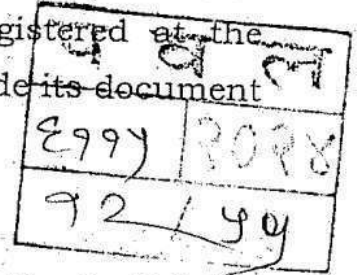 gistered at the
प व ल
de its document
६११५ २०२४
१२ / ५५